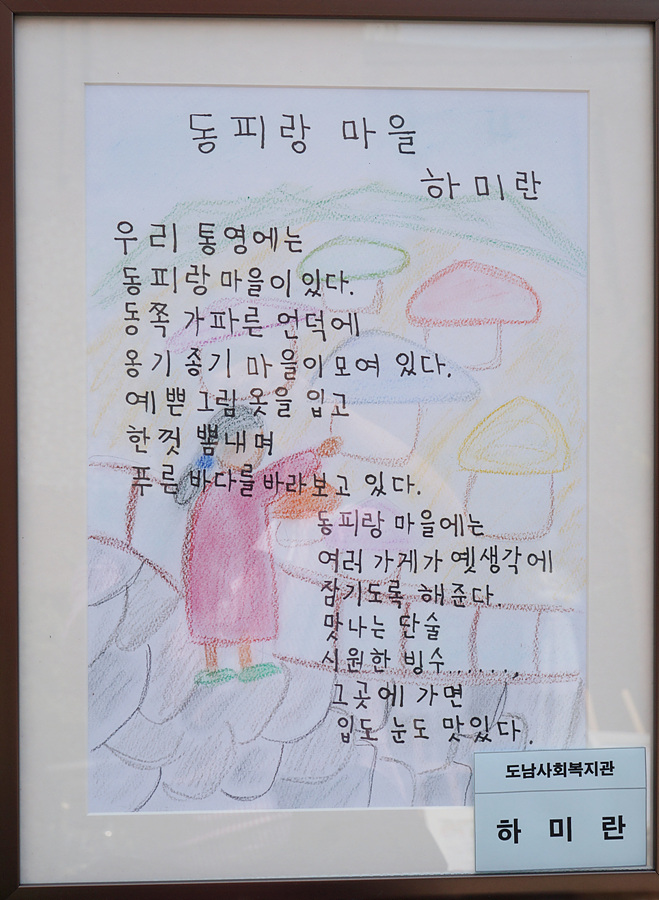 동피랑 마을
하미란
우리 통영에는
동피랑 마을이 있다.
동쪽 가파른 언덕에
옹기 종기 마을이 모여 있다.
예쁜 그림 옷을 입고
한껏 뽐내며
푸른 바다를 바라보고 있다.
동피랑 마을에는
여러 가게가 옛생각에
잠기도록 해준다.
맛나는 단술
시원한 빙수.......
그곳에 가면
입도 눈도 맛있다.
도남사회복지관
하 미 란